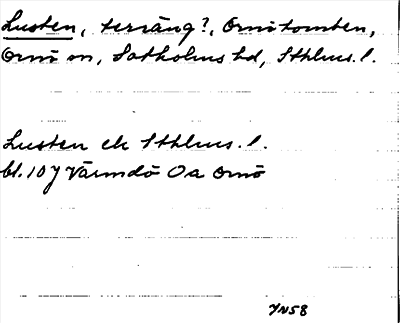 Lusten, terräng?, Ornötomten,
Ornö sn, Sotholms hd, Sthlms. l.
Lusten ek Sthlms. l.
bl. 107 Värmdö Oa Ornö
YN58